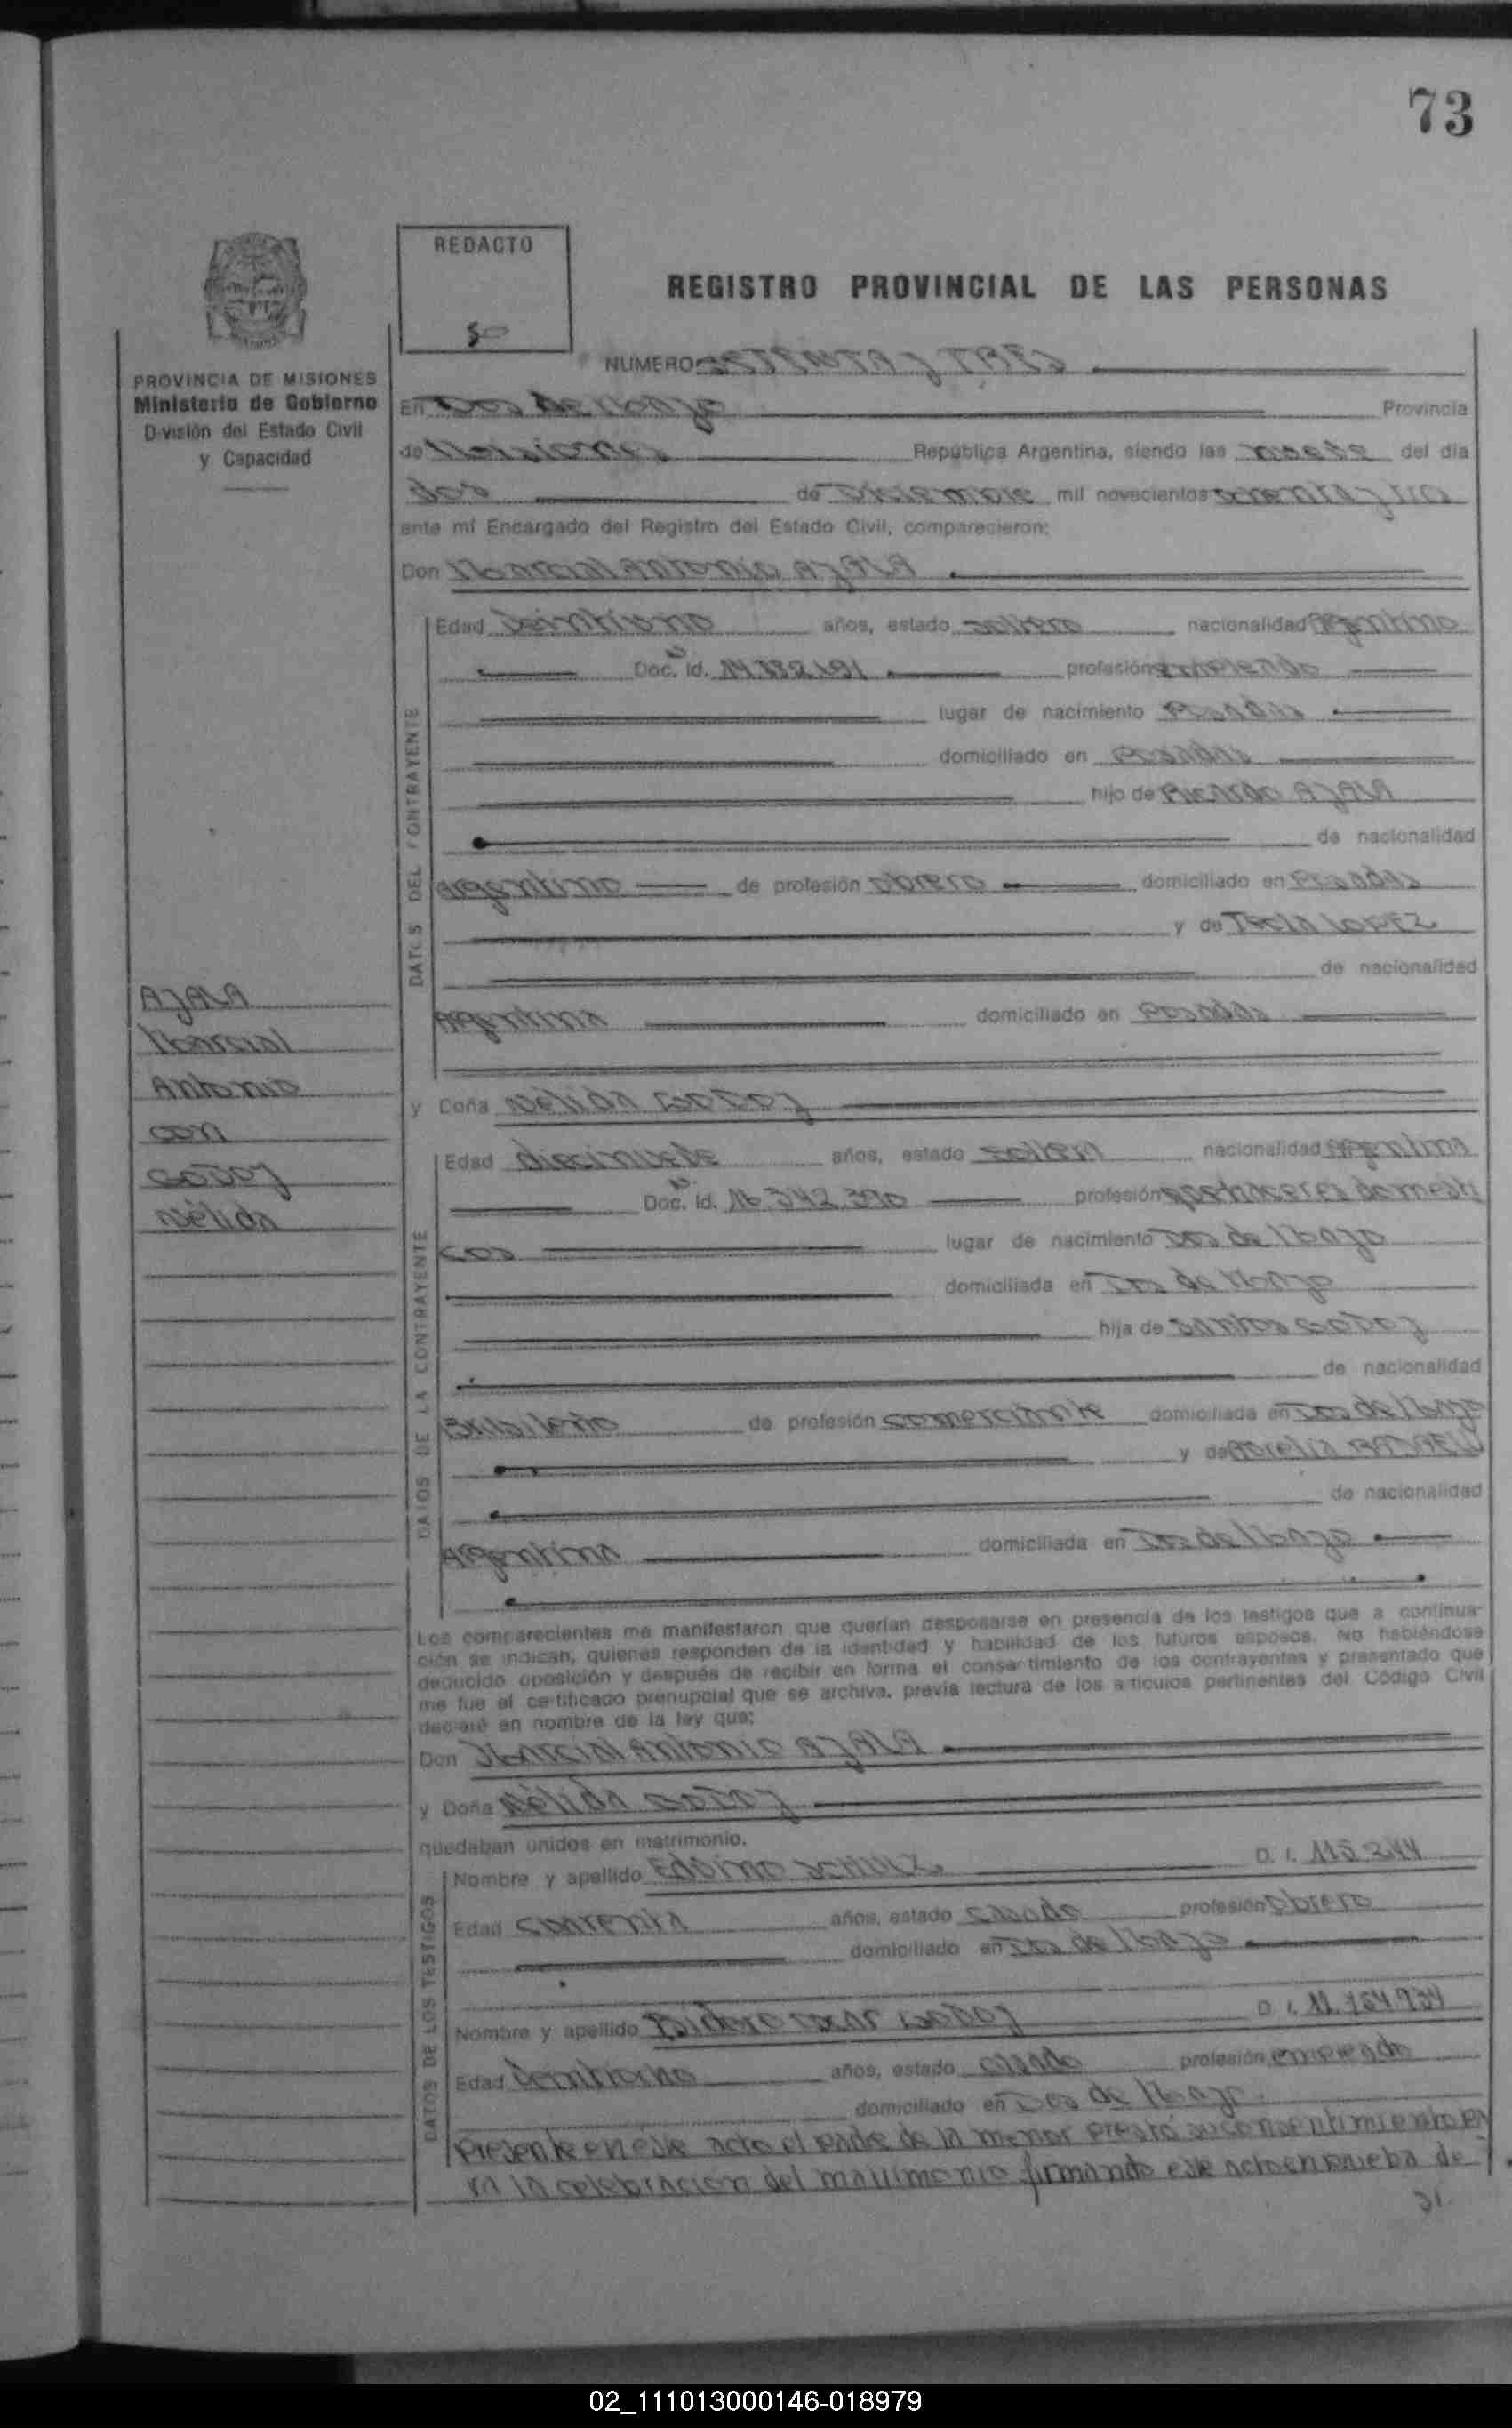 73
REDACTO
REGISTRO PROVINCIAL DE LAS PERSONAS
PROVINCIA DE MISIONES
Ministerio de Gobierno
División del Estado Civil
y Capacidad
NUMERO SETENTA y TRES
En Dos de Mayo Provincia
de Misiones República Argentina, siendo las del día
dos de Diciembre mil novecientos
ante mí Encargado del Registro del Estado Civil, comparecieron:
Don Marcial Antonio AyALA
DATOS DEL CONTRAYENTE
Edad años, estado soltero nacionalidad Argentino
Doc. Id. profesión empleado
lugar de nacimiento Posadas
domiciliado en Posadas
hijo de Ricardo AyALA
de nacionalidad
Argentino de profesión obrero domiciliado en Posadas
y de Tecla LOPEZ
de nacionalidad
Argentina domiciliado en Posadas
AyALA
Marcial
Antonio
con
GODOy
Nélida
y Doña Nélida GODOy
DATOS DE LA CONTRAYENTE
Edad diecinueve años, estado soltera nacionalidad Argentina
Doc. Id. 16.342.390 profesión quehaceres domesti
cos lugar de nacimiento Dos de Mayo
domiciliada en Dos de Mayo
hija de Santos GODOy
de nacionalidad
Brasileño de profesión comerciante domiciliada en Dos de Mayo
y de
de nacionalidad
Argentina domiciliada en Dos de Mayo
Los comparecientes me manifestaron que querían desposarse en presencia de los testigos que a continua-
ción se indican, quienes responden de la identidad y habilidad de los futuros esposos. No habiéndose
deducido oposición y después de recibir en forma el consentimiento de los contrayentes y presentado que
me fue el certificado prenupcial que se archiva, previa lectura de los artículos pertinentes del Código Civil
declaré en nombre de la ley que:
Don Marcial Antonio AyALA
y Doña Nélida GODOy
quedaban unidos en matrimonio.
DATOS DE LOS TESTIGOS
Nombre y apellido D. I. 115.244
Edad cuarenta años, estado casado profesión obrero
domiciliado en Dos de Mayo
Nombre y apellido Isidoro Oscar GODOy D. I. 12.754.934
Edad Veintiocho años, estado casado profesión empleado
domiciliado en Dos de Mayo.
Presente en este acto el padre de la menor prestó su consentimiento pa
ra la celebracion del matrimonio firmando este acto en prueba de
02_111013000146-018979